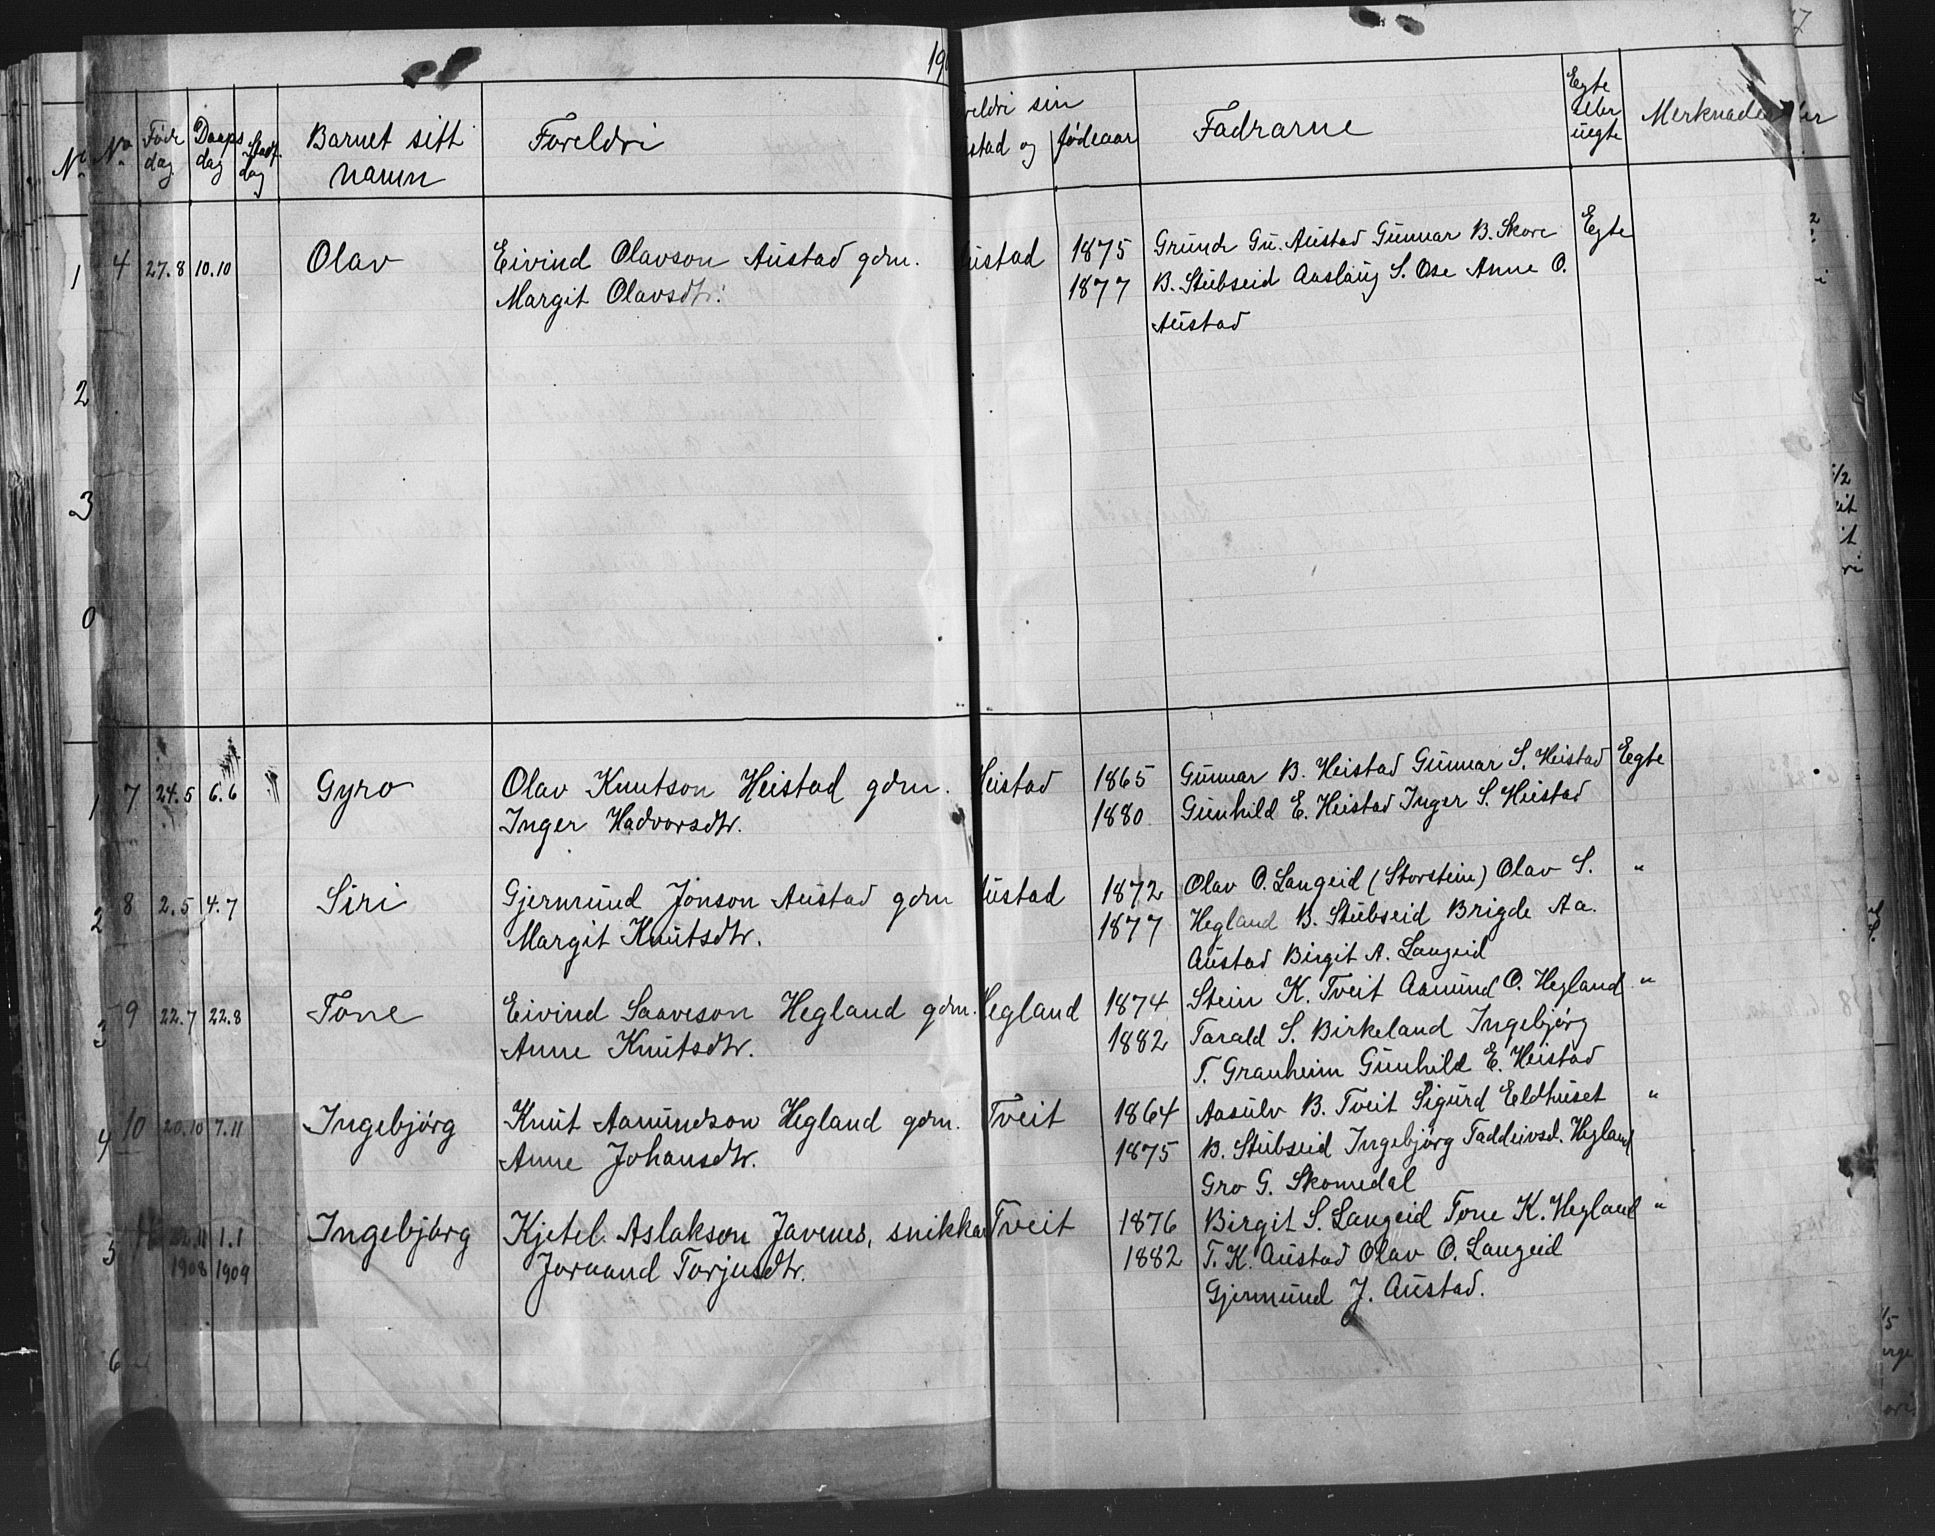 190
No Føde dag Daaps dag Stadf. dag Barnet sitt namn Foreldri reldri sin stad og fødeaar Fadrarne Egte eller uegte Merknader
4 27.8 10.10 Olav Eivind Olavson Austad gdm. Austad 1875 Gunnar B. Skore Egte
Margit Olavsdtr. 1877 B. Stubseid Aaslaug S. Ose Anne O.
Austad
7 24.5 6.6 Gyro Olav Knutson Heistad gdm. Heistad 1865 Gunnar B. Heistad Gunnar S. Heistad Egte
Inger Hadvorsdtr. 1880 Gunhild E. Heistad Inger S. Heistad
8 2.5 4.7 Siri Gjermund Jonson Austad gdm Austad 1872 Olav O. Langeid (Storstein) Olav S. "
Margit Knutsdtr. 1877 Hegland B. Stubseid Brigde Aa.
Austad Birgit A. Langeid
9 22.7 22.8 Tone Eivind Saaveson Hegland gdm. Hegland 1874 Stein K. Tveit Aamund O. Hegland "
Anne Knutsdtr. 1882 Tarald S. Birkeland Ingebjørg
T. Granheim Gunhild E. Heistad
10 20.10 7.11 Ingebjørg Knut Aamundson Hegland gdm. Tveit 1864 Aasulv B. Tveit Sigurd Eldhuset "
Anne Johansdtr. 1875 B. Stubseid Ingebjørg Taddeivsd. Hegland
Gro G. Skomedal
11 22.11 1.1 Ingebjørg Kjetel Aslakson Javenes, snikkar Tveit 1876 Birgit S. Langeid Tone K. Hegland "
1908 1909 Joraand Torjusdtr. 1882 T. K. Austad Olav O. Langeid
Gjermund J. Austad.